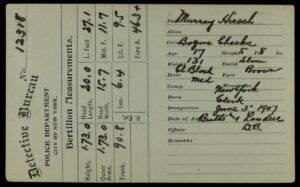 No. 12318
Detective Bureau
POLICE DEPARTMENT
CITY OF NEW YORK.
Bertillon Measurements.
Height, 1.73.0
Head Length, 20.0
L. Foot 27.1
Outer Arms, 1.73.0
Head Width, 15.7
Mid. F. 11.7
Trunk, 90.8
Length, 6.4
Lit. F. 9.5
Fore A. 46.3+
Name Murray Hirsch
Alias
Crime Bogus Checks
Age 17 Height 5-8 In.
Weight 131 Build Slim
Hair Ct Black Eyes Brown
Comp. Med
Born New York
Occupation Clerk
June 3rd 1907
Officer
D.B.
Remarks